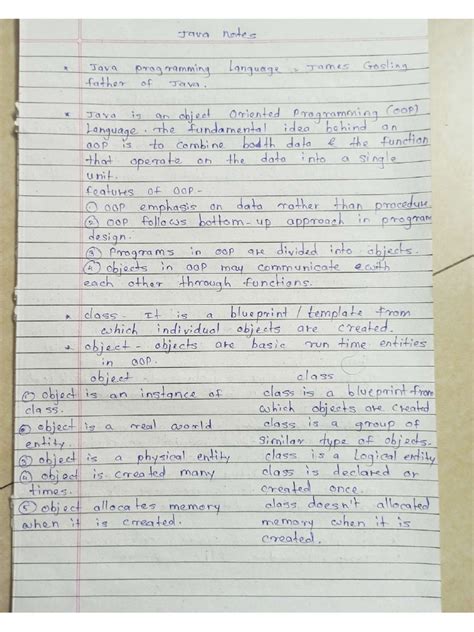 Java notes
* Java programming Language, James Gosling
father of Java.
* Java is an object Oriented Programming (OOP)
Language. The fundamental idea behind an
OOP is to combine boath data & the function
that operate on the data into a single
unit.
features of OOP -
① OOP emphasis on data rather than procedure
② OOP follows bottom-up approach in program
design.
③ Programs in OOP are divided into objects.
④ objects in OOP may communicate with
each other through functions.
* class - It is a blueprint / template from
which individual objects are created.
* object - objects are basic run time entities
in OOP.
object class
① object is an instance of class is a blueprint from
class. which objects are created
② object is a real world class is a group of
entity. similar type of objects.
③ object is a physical entity class is a Logical entity
④ object is created many class is declared or
times. created once.
⑤ object allocates memory class doesn't allocated
when it is created. memory when it is
created.